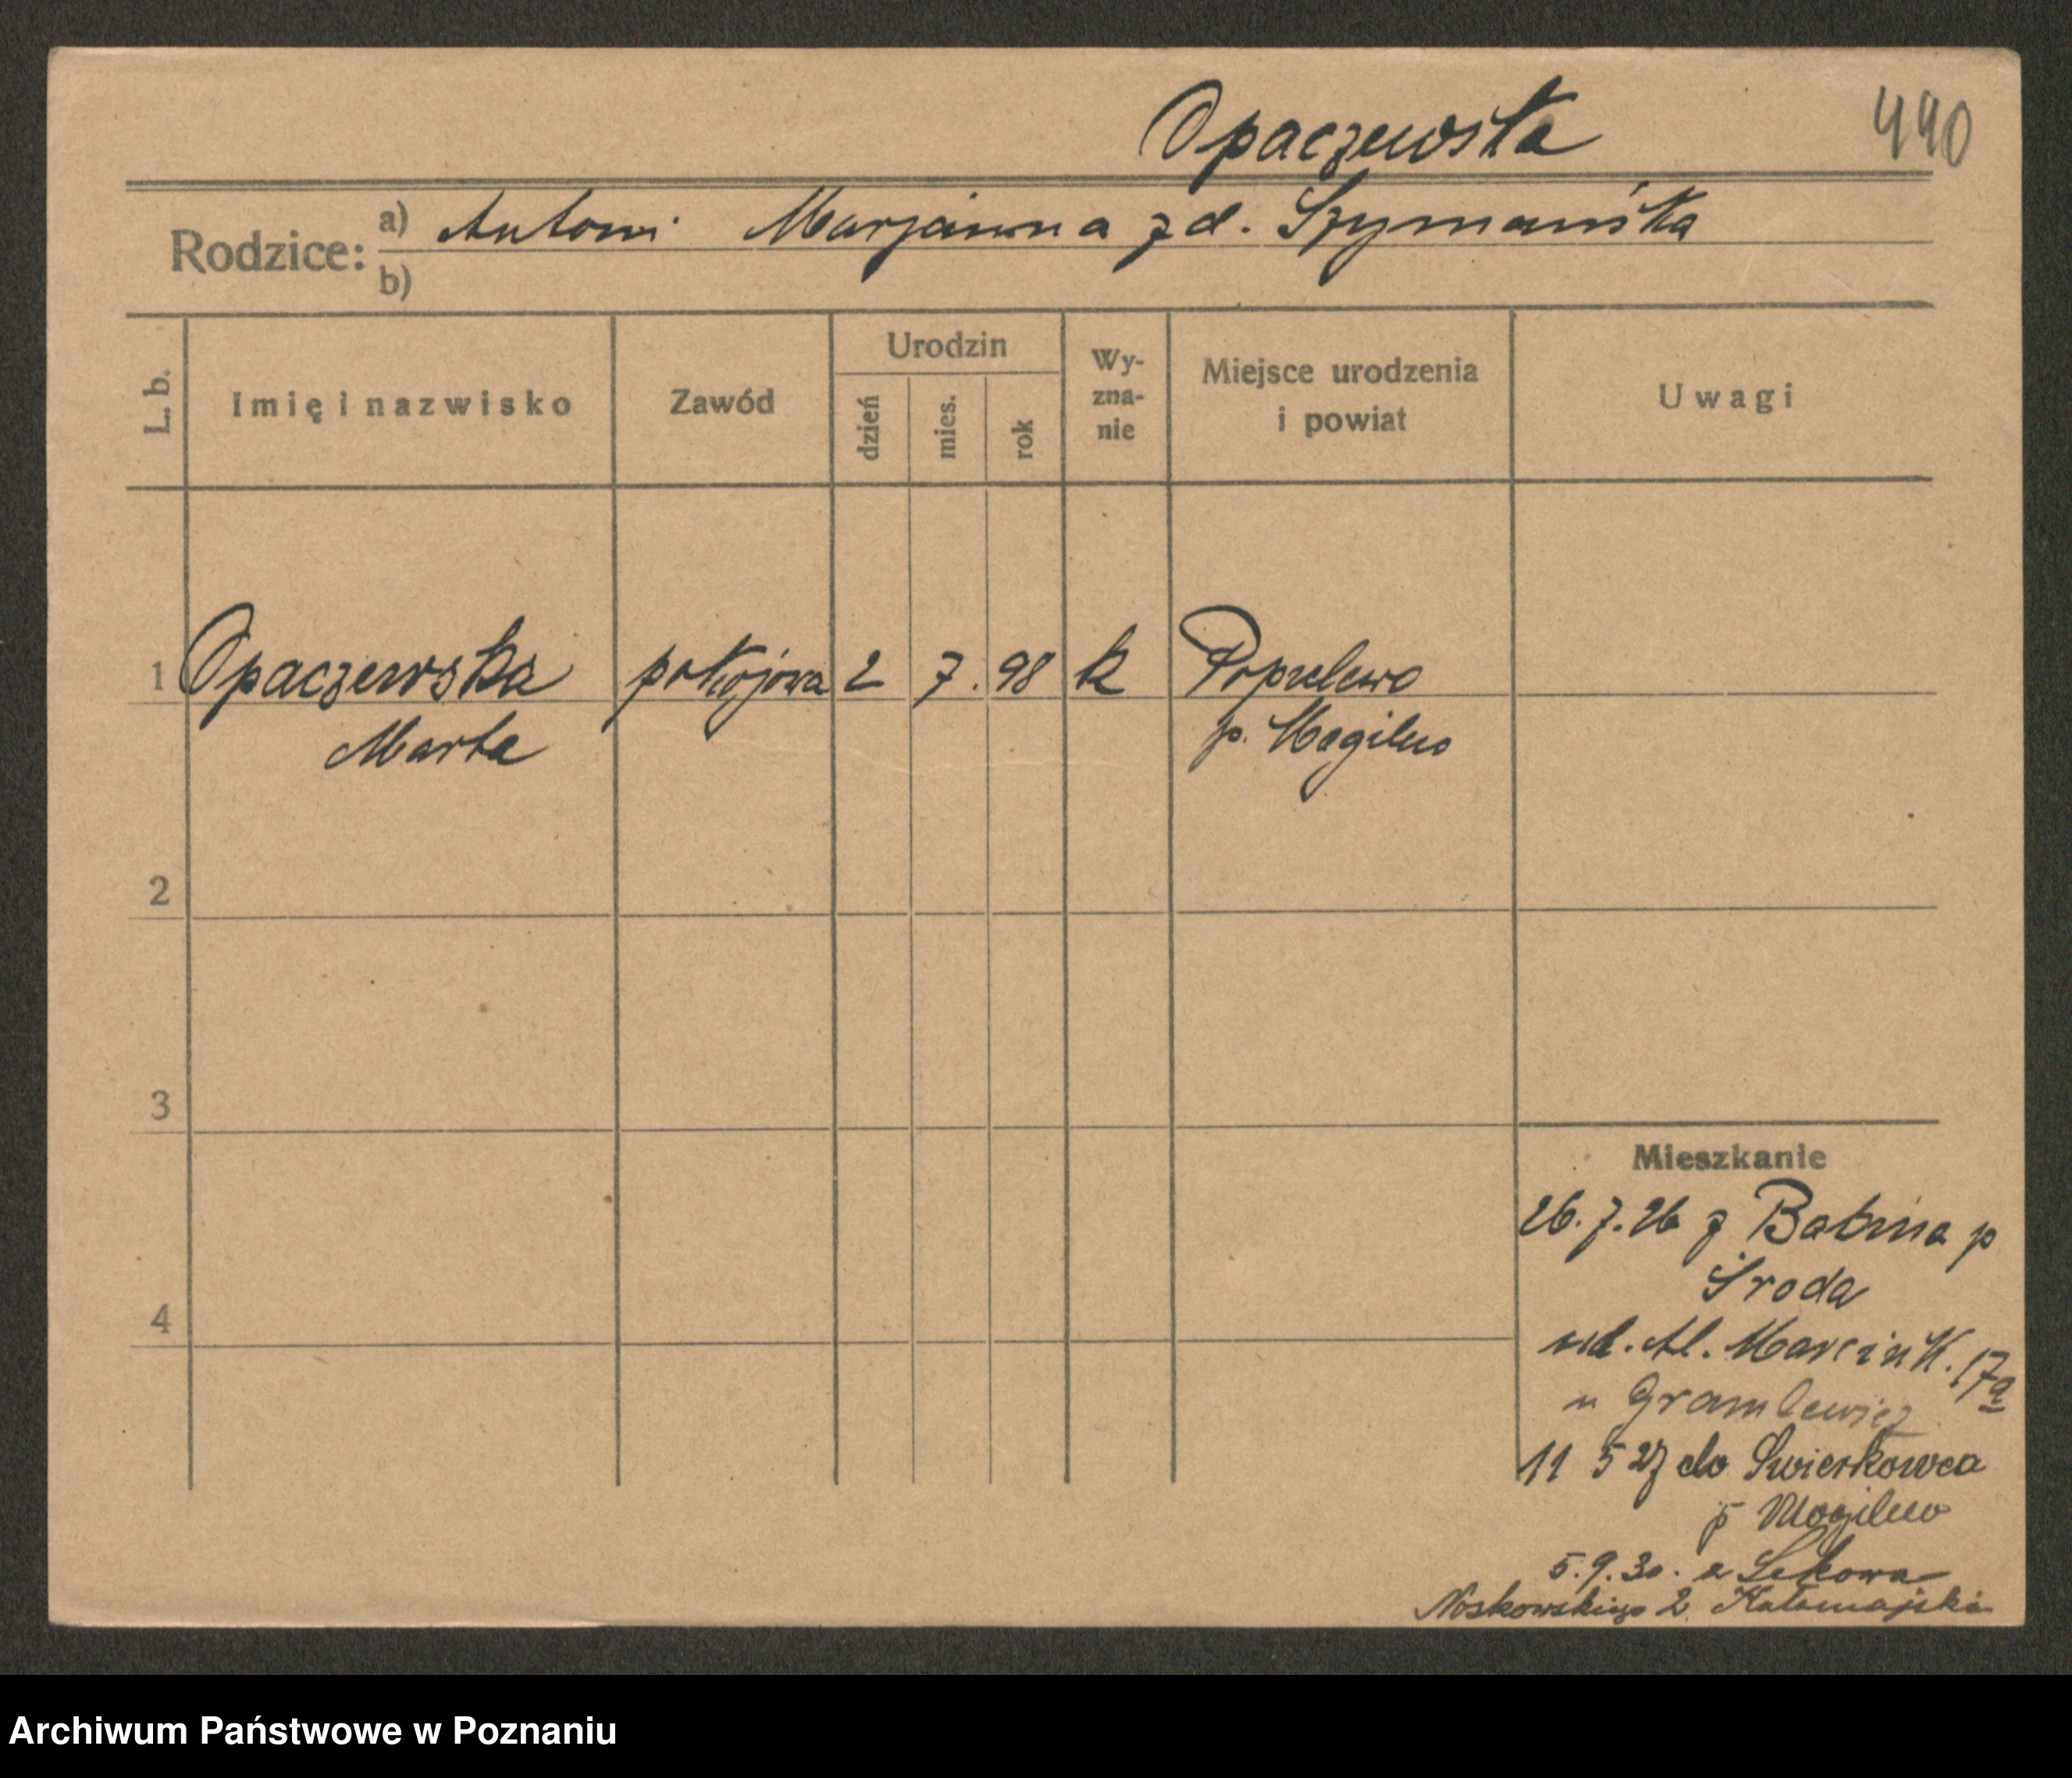 Opaczewska 490
Rodzice: a) Antoni Marjanna z d. Szymańska
b)
L. b.
Imię i nazwisko
Zawód
Urodzin
dzień
mies.
rok
Wy-
zna-
nie
Miejsce urodzenia
i powiat
Uwagi
1 Opaczewska pokojowa 2 7. 98 k Popielewo
Marta p. Mogilno
2
3
4
Mieszkanie
26.7.26 z Babina p
Środa
ul. Al. Marcink. 17a
u
11 5 27 do Swierkowca
p Mogilno
5.9.30. z Sekowa
Noskowskiego 2
Archiwum Państwowe w Poznaniu